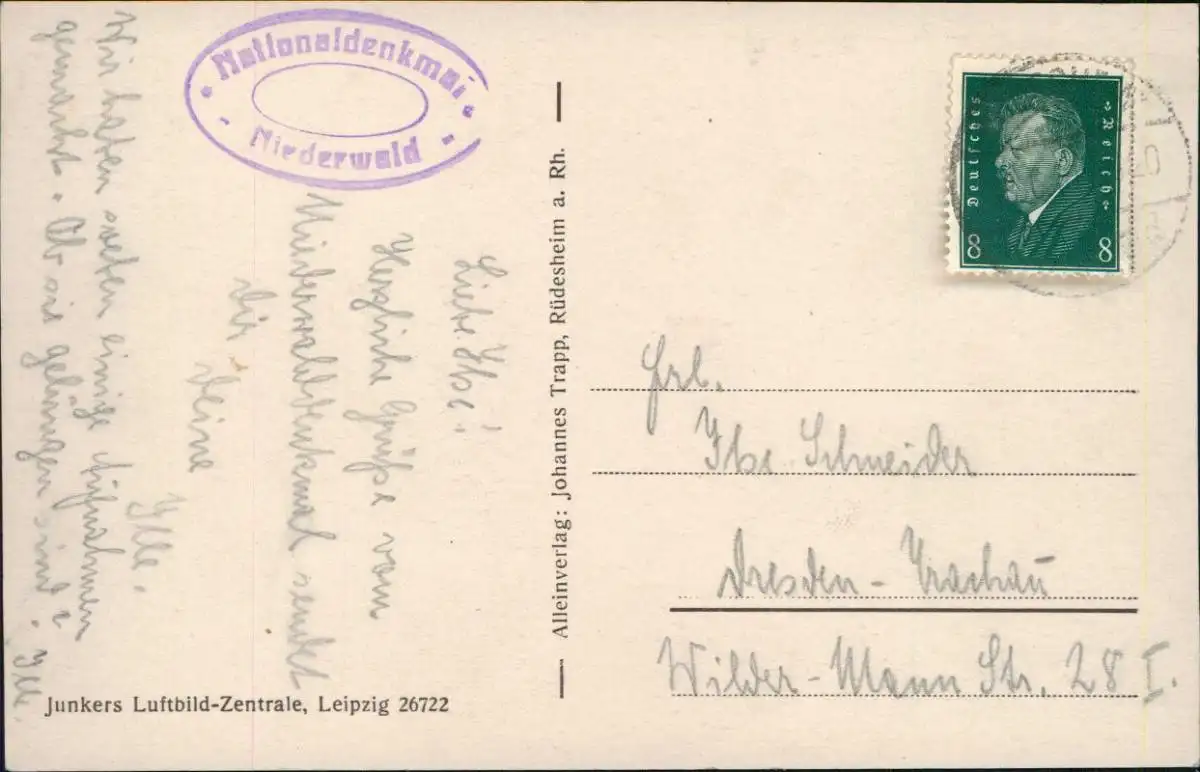 Nationaldenkmal
Niederwald
Liebe Ilse!
Herzliche Grüße vom
Niederwalddenkmal sendet
Dir
Deine
Ille.
Wir haben soeben einige Aufnahmen
gemacht. Ob sie gelungen sind?
Ille.
Junkers Luftbild-Zentrale, Leipzig 26722
Alleinverlag: Johannes Trapp, Rüdesheim a. Rh.
Deutsches
Reich
8 8
Frl.
Ilse Schneider
Dresden-Trachau
Wilder-Mann Str. 28 I.